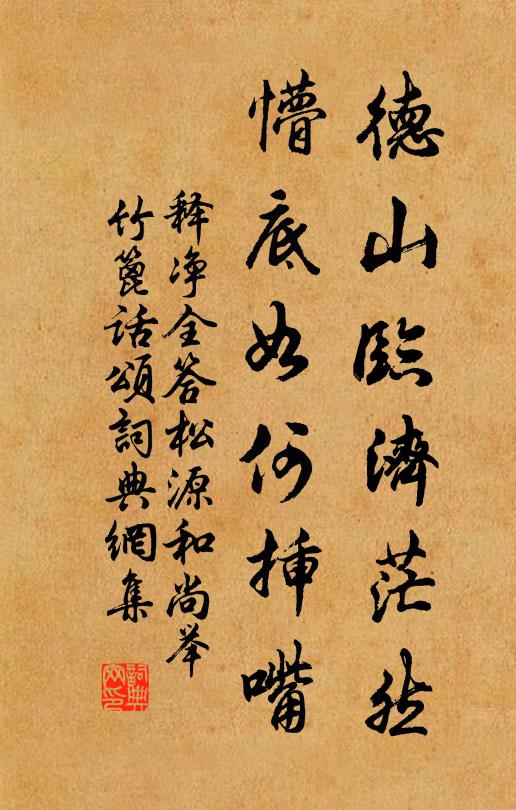 德山臨濟茫然
懵底如何揷嘴
释净全答松源和尚举
竹篦話頌詞典網集
詞典